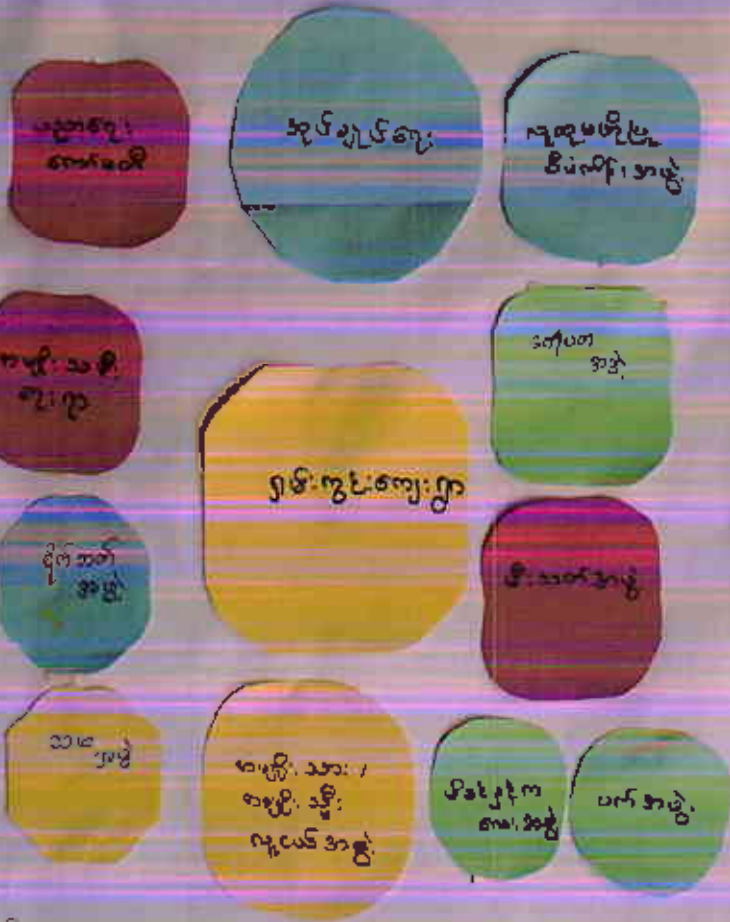 ပညာရေး
ကော်မတီ
အုပ်ချုပ်ရေး
လူထုဗဟိုပြု
စီမံကိန်းအဖွဲ့
အမျိုးသမီး
ရေးရာ
အဖွဲ့
ရှမ်းကွင်းကျေးရွာ
ရိုက်ဘတ်
အဖွဲ့
မီးသတ်အဖွဲ့
သမ
အဖွဲ့
အမျိုးသား၊
အမျိုးသ္မီး
လူငယ်အဖွဲ့
မိခင်နှင့်က
လေးအဖွဲ့
ပက်အဖွဲ့